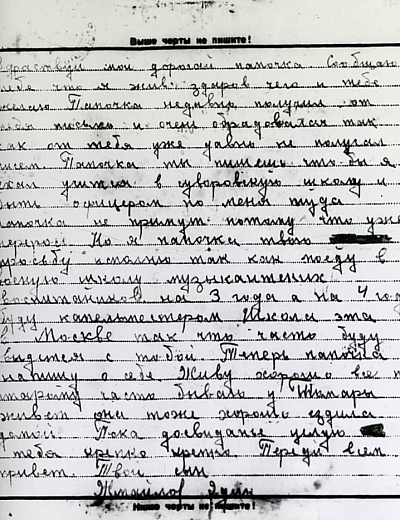 Выше черты не пишите!
здраствуй мой дорогой папочка Сообщаю
тебе что я жив здоров чего и тебе
желаю Папочка недавно получил от
тебя письмо и очень обрадовался так
как от тебя уже давно не получал
писем Папочка ты пишешь что бы я
ехал учится в суворовскую школу и
быть офицером но меня туда
папочка не примут потому что уже
перерос Но я папочка твою
просьбу исполню так как поеду в
школу музыкантских
воспитаников на 3 года а на 4 год
буду капельместером Школа эта
в Москве так что часто буду
видится с тобой. Теперь папочка
напишу о себе. Живу хорошо
часто бываю у Тамары
живет она тоже хорошо ездила
домой Пока досвиданье целую
тебя крепко крепко Передай всем
привет Твой сын
Ниже черты не пишите!